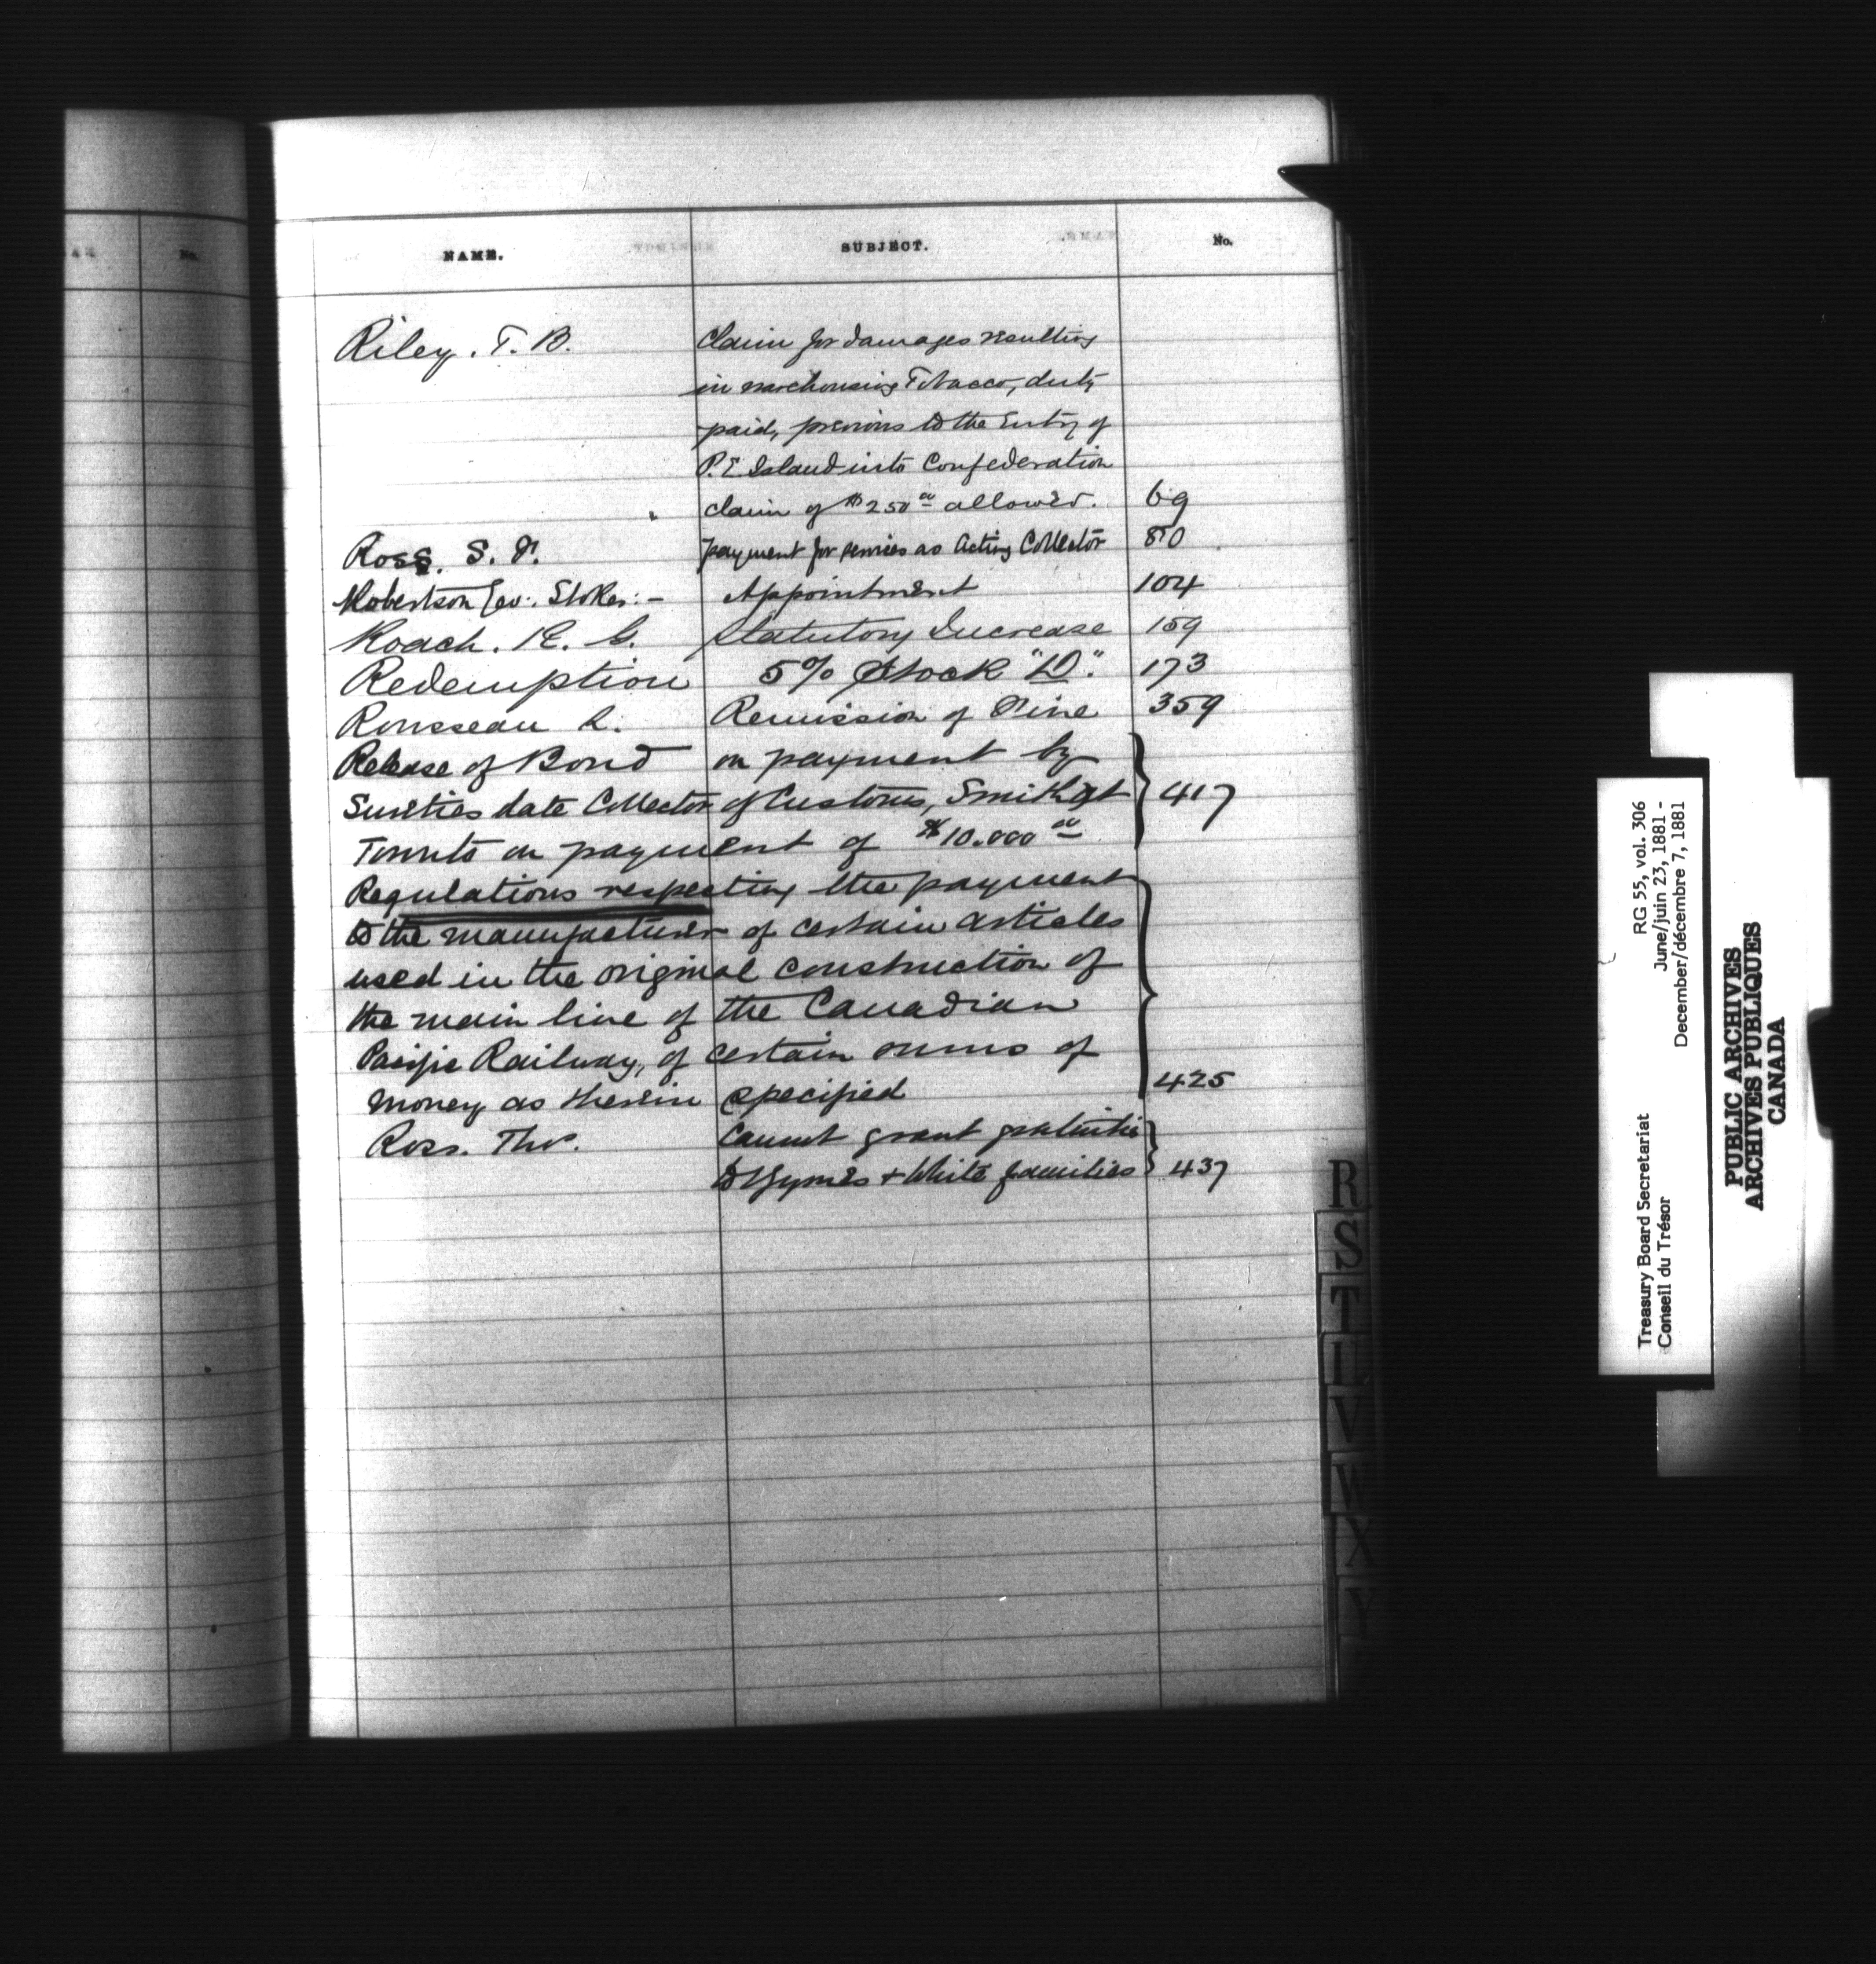 NAME. SUBJECT. No.
Riley. T. B. Claim for damages resulting
in warehousing Tobacco, duty
paid, previous to the Entry of
P.E. Island into Confederation
claim of $250 00 allowed. 69
Ross. S. F. payment for services as Acting Collector 80
Robertson Stokes:- Appointment 104
Roach. R. G. Statutory Increase 159
Redemption 5% Stock "D". 173
Rousseau L. Remission of Fine 359
Release of Bond on payment by
Sureties date Collector of Customs, Smith at 417
Toronto on payment of $10.000 00
Regulations respecting the payment
to the manufacturer of certain articles
used in the original construction of
the main line of the Canadian
Pacific Railway, of certain sums of
money as therein specified 425
Ross. Thos. Cannot grant gratuities
to Symes + White families 437
R
S
T
U
V
W
X
Y
Z
Treasury Board Secretariat RG 55, vol. 306
Conseil du Trésor June/juin 23, 1881 -
December/décembre 7, 1881
PUBLIC ARCHIVES
ARCHIVES PUBLIQUES
CANADA